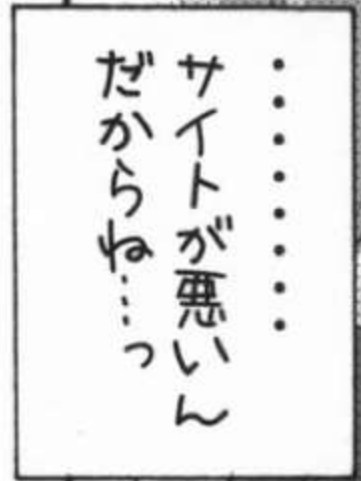 ・・・・・・・・
サイトが悪いん
だからね…っ